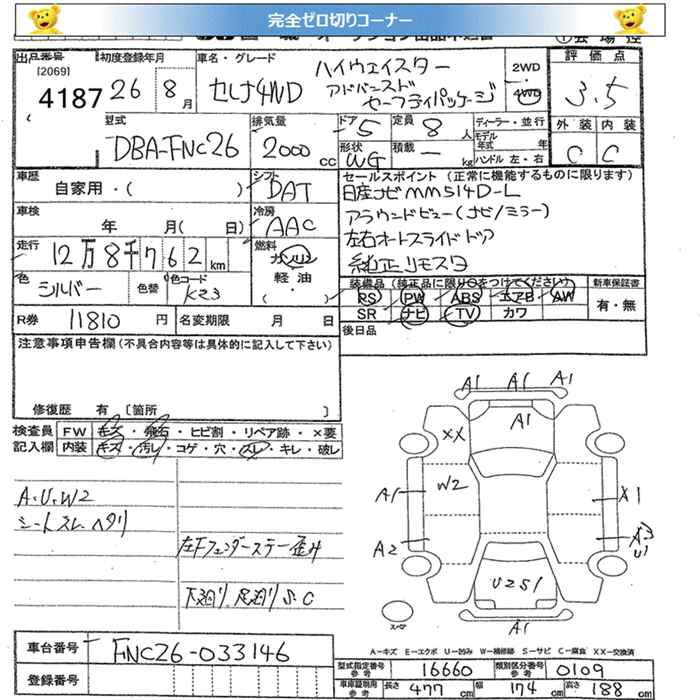 完全ゼロ切りコーナー
出品番号 初度登録年月 車名・グレード 評価点
[2069]
4187 26 8月 セレナ4WD ハイウェイスター アドバンスド セーフティパッケージ 2WD 4WD 3.5
型式 排気量 ドア 5 定員 8人 ディーラー・並行 外装 内装
DBA-FNC26 2000cc 形状 WG 積載 ー kg モデル年式 年式 ハンドル 左・右 C C
車歴 自家用・( ) シフト DAT セールスポイント(正常に機能するものに限ります)
日産ナビMM514D-L
車検 年 月(日) 冷房 AAC アラウンドビュー(ナビ/ミラー)
走行 12万8千762km 燃料 ガソリン 軽油 ( ・ ) 左右オートスライドドア
純正リモスタ
色 シルバー 色替 色コード K23 装備品(純正品に限り○をつけてください) 新車保証書
RS PW ABS エアB AW 有・無
R券 11810円 名変期限 月 日 SR ナビ TV カワ
注意事項申告欄(不具合内容等は具体的に記入して下さい) 後日品
修復歴 有 [箇所 ]
検査員 FW キズ・飛石・ヒビ割・リペア跡・×要
記入欄 内装 キズ・汚レ・コゲ・穴・スレ・キレ・破レ
A1 A1 A1
A1
XX
W2
A1 X1
A2 X3
U1
U2S1
A1
A.U.W2
シートスレ ヘタリ
左Fフェンダーステー歪み
下廻り、足廻りS.C
A-キズ E-エクボ U-凹み W-補修跡 S-サビ C-腐食 XX-交換済
車台番号 FNC26-033146
登録番号
型式指定番号 参考 16660 類別区分番号 参考 0109
車庫証明用 参考 長さ 477cm 幅 174cm 高さ 188cm